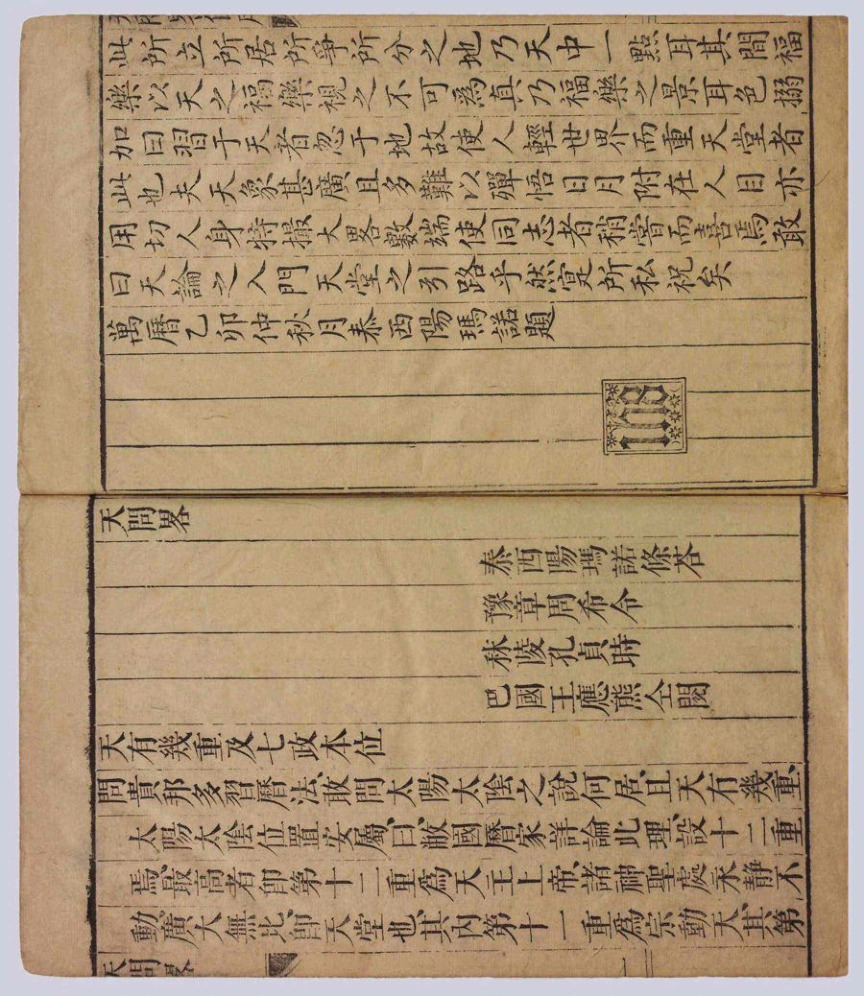 此所立所居所爭所分之地乃天中一點耳其間福
樂以天之福樂視之不可為真乃福樂之景耳色搦
加曰習于天者忽于地故使人輕世界而重天堂者
此也夫天象甚廣且多難以殫悟日月附在人目亦
用切人身特撮大畧數端使同志者稍嘗而喜焉敢
曰天論之入門天堂之引路乎然寔所私祝矣
萬曆乙卯仲秋月泰西陽瑪諾題
天問畧
泰西陽瑪諾條荅
豫章周希令
秣陵孔貞時
巴國王應熊仝閱
天有幾重及七政本位
問貴邦多習曆法、敢問太陽太陰之說何居、且天有幾重、
太陽太陰位置安屬、曰、敝國曆家詳論此理、設十二重
焉、最高者即第十二重為天主上帝、諸神聖處永靜不
動、廣大無比、即天堂也、其內第十一重為宗動天、其第
天問畧